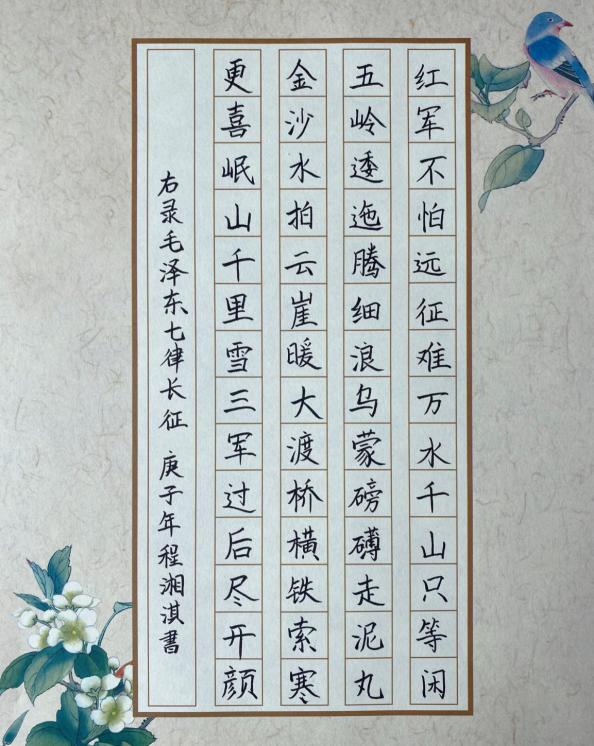 红军不怕远征难万水千山只等闲
五岭逶迤腾细浪乌蒙磅礴走泥丸
金沙水拍云崖暖大渡桥横铁索寒
更喜岷山千里雪三军过后尽开颜
右录毛泽东七律长征 庚子年程湘淇書